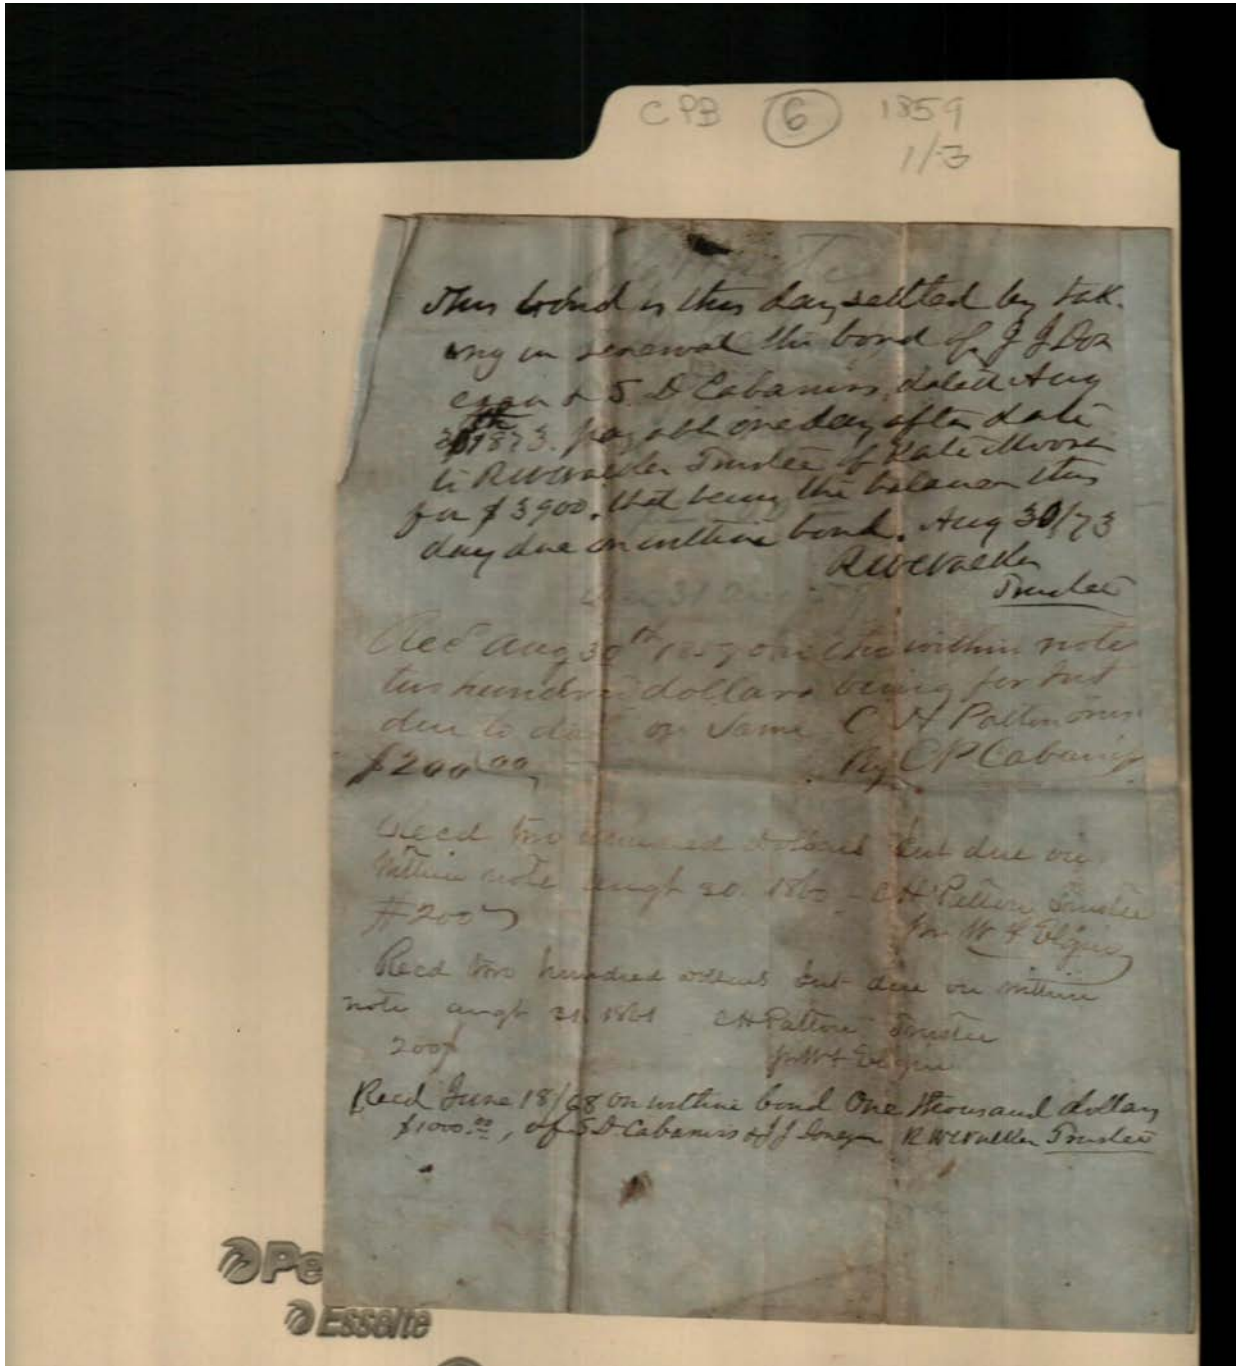 CPB 6 1859
1/3
This bond is this day settled by tak-
ing in renewal the bond of J J Don
egan & S. D Cabaniss, dated Aug
30th 1873. payable one day after date
to R W Walker Trustee of Kate Moore
for $3900. that being the balance this
day due on within bond. Aug 30/73
R W Walker
Trustee
Recd Aug 30th 1859 on the within note
two hundred dollars being for Int
due to date on same C H Patton
$200.00 By C P Cabaniss
Recd two hundred dollars Int due on
within note augt 30. 1860 - C H Patton Trustee
#200 for W F Elgin
Recd two hundred dollars Int due on within
note augt 31 1861 C H Patton Trustee
200 for W F Elgin
Recd June 18/68 on within bond One thousand dollars
$1000.00, of S. D. Cabaniss & J J Donegan R W Walker Trustee
Pe
Esselte